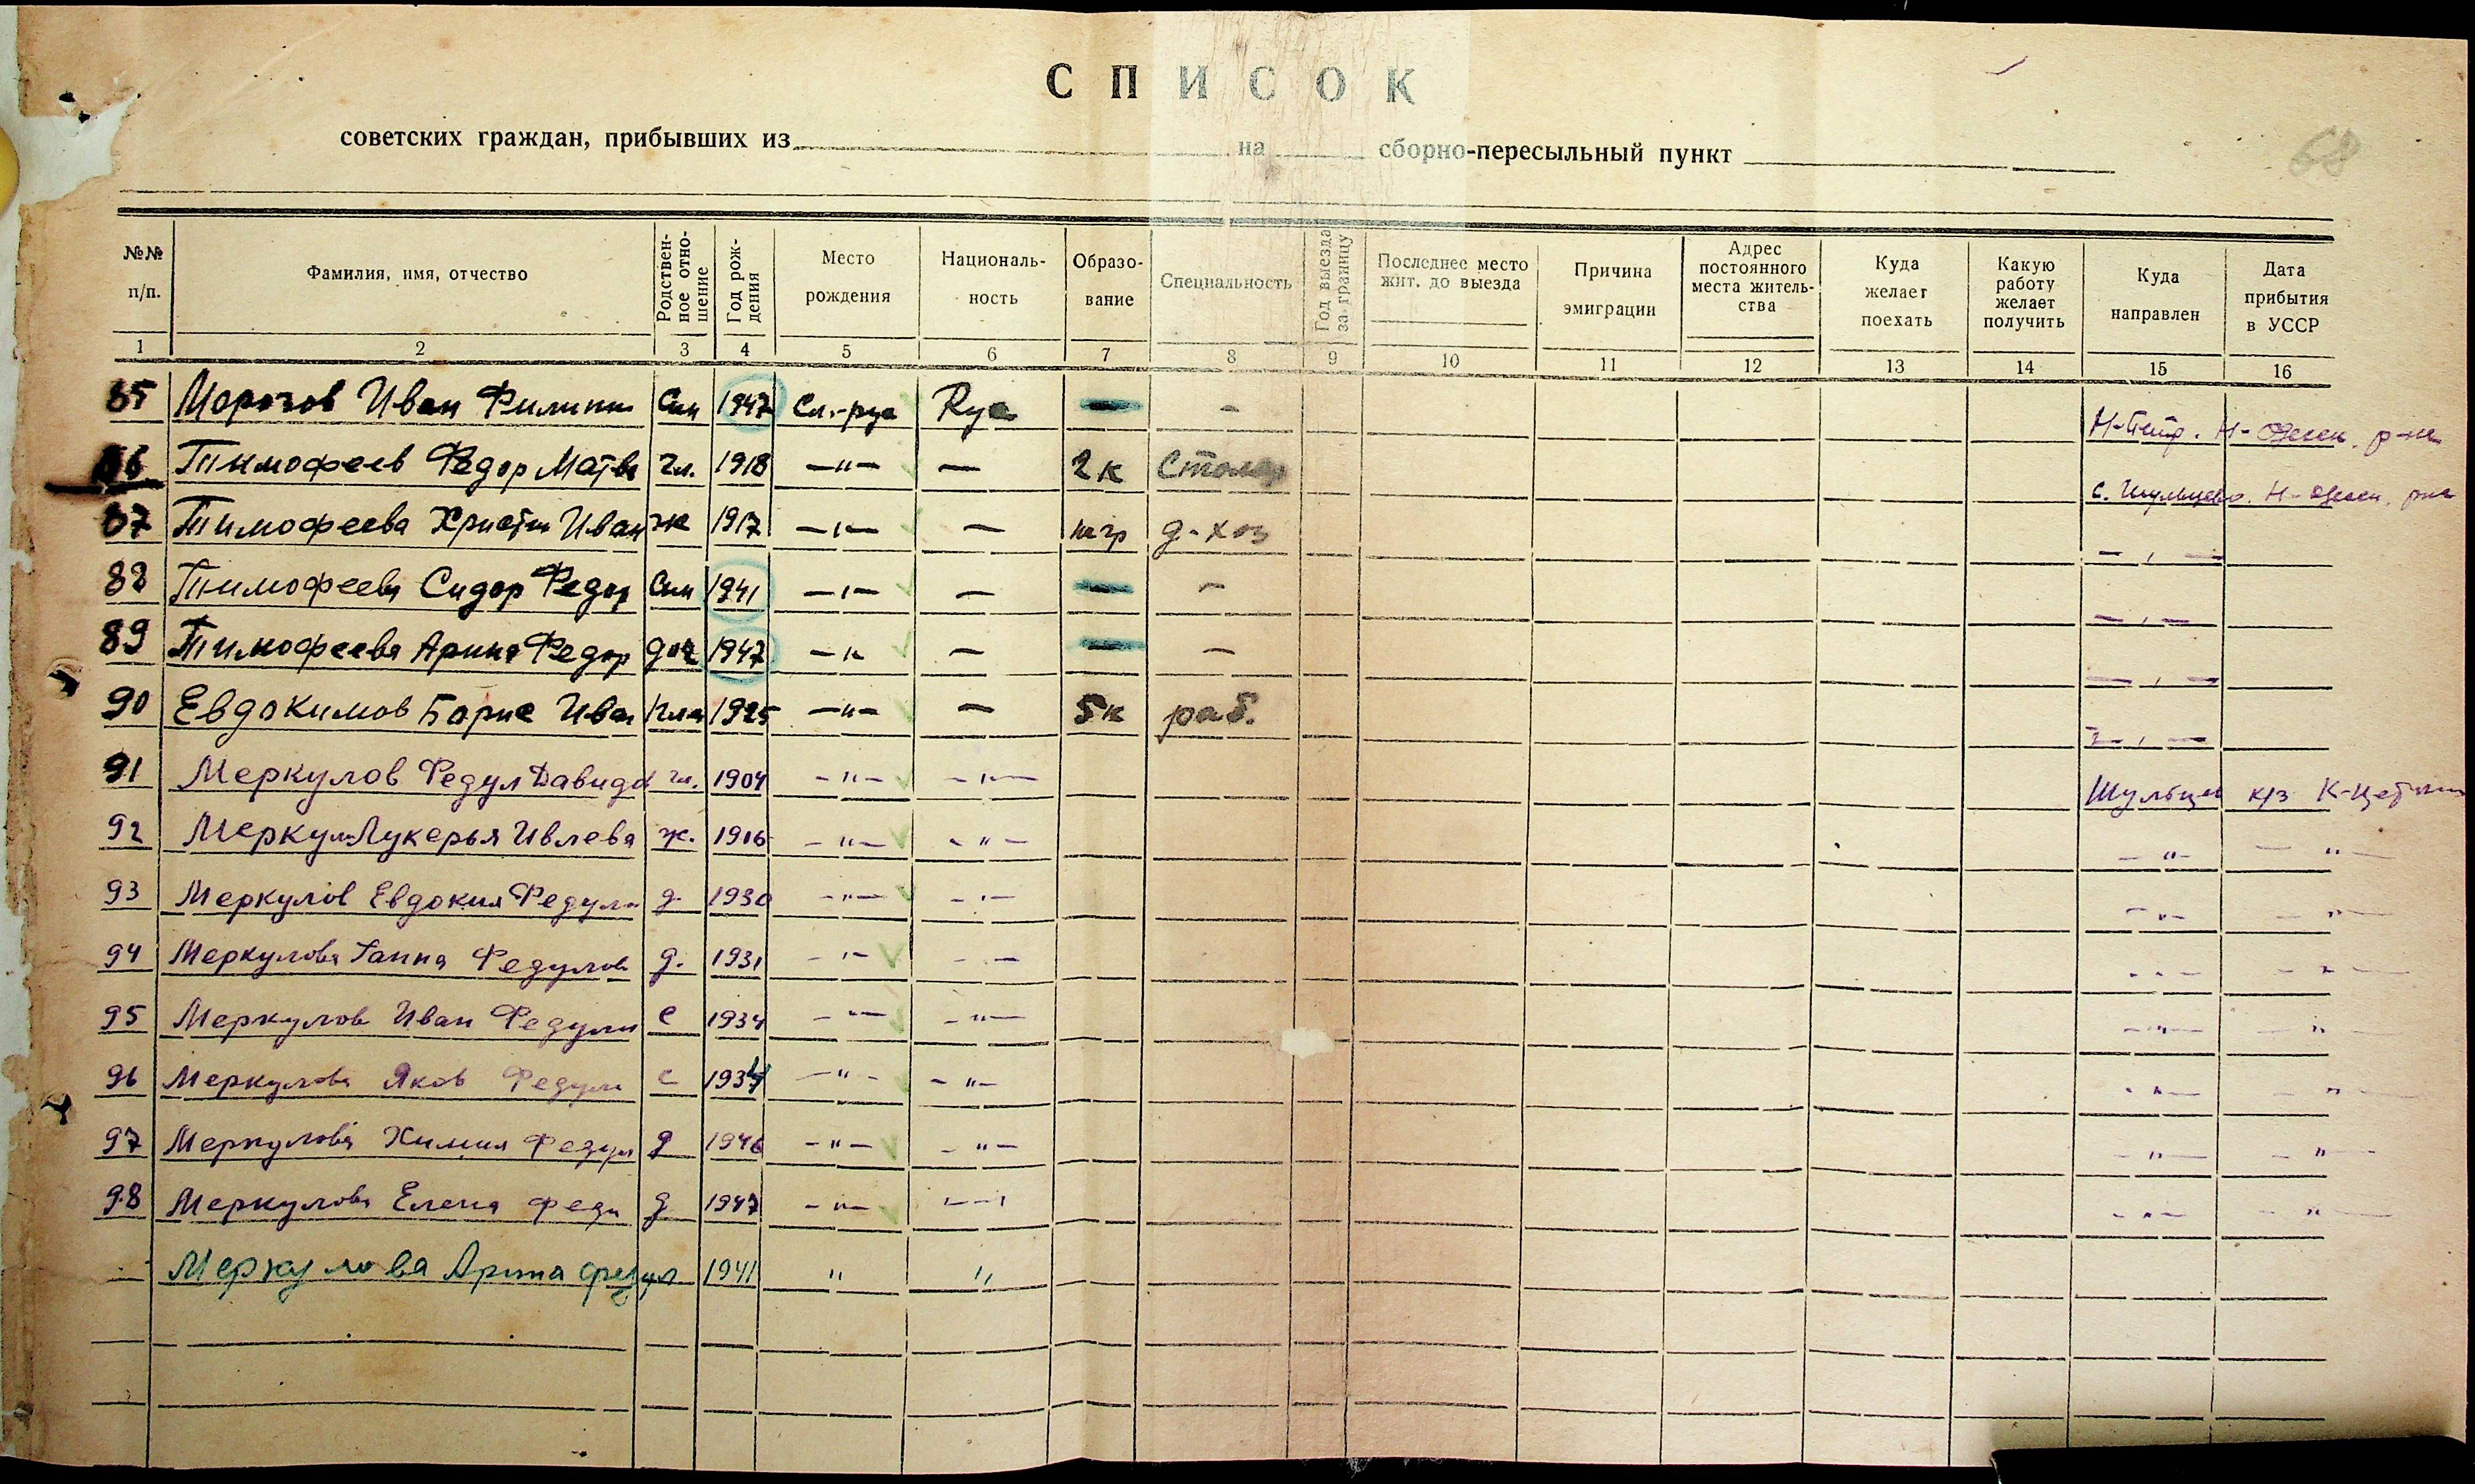 68
СПИСОК
советских граждан, прибывших из на сборно-пересыльный пункт
№№ п/п. Фамилия, имя, отчество Родственное отношение Год рождения Место рождения Националь-ность Образо-вание Специальность Год выезда за границу Последнее место жит. до выезда Причина эмиграции Адрес постоянного места житель-ства Куда желает поехать Какую работу желает получить Куда направлен Дата прибытия в УССР
1 2 3 4 5 6 7 8 9 10 11 12 13 14 15 16
85 Морозов Иван Филипп Син 1947 Сл.-рус Рус — - Н-Одесск. р-на
86 Тимофеев Федор Матв гл. 1918 —"— — 2к Столяр с. Шульцево. Н-Одесск. р-на
87 Тимофеева Христин Иван ж 1917 —"— — мгр д-хоз — " —
88 Тимофеев Сидор Федор Син 1941 —"— — — - — " —
89 Тимофеева Арина Федор доч 1947 —"— — — - — " —
90 Евдокимов Борис Иван 1925 —"— — 5к раб. — " —
91 Меркулов Федул Давидов гл. 1904 —"— —"— Шульцев к/з К-Цеткин
92 Меркул Лукерья Ивлева ж. 1916 —"— —"— —"— —"—
93 Меркулов Евдокия Федул д. 1930 —"— —"— —"— —"—
94 Меркулова Ганна Федулов д. 1931 —"— —"— —"— —"—
95 Меркулов Иван Федули с 1934 —"— —"— —"— —"—
96 Меркулова Яков Федули с 1934 —"— —"— —"— —"—
97 Меркулова Химия Федул д 1946 —"— —"— —"— —"—
98 Меркулова Елена Феду д 1947 —"— —"— —"— —"—
Меркулова Арина Федул 1941 " "